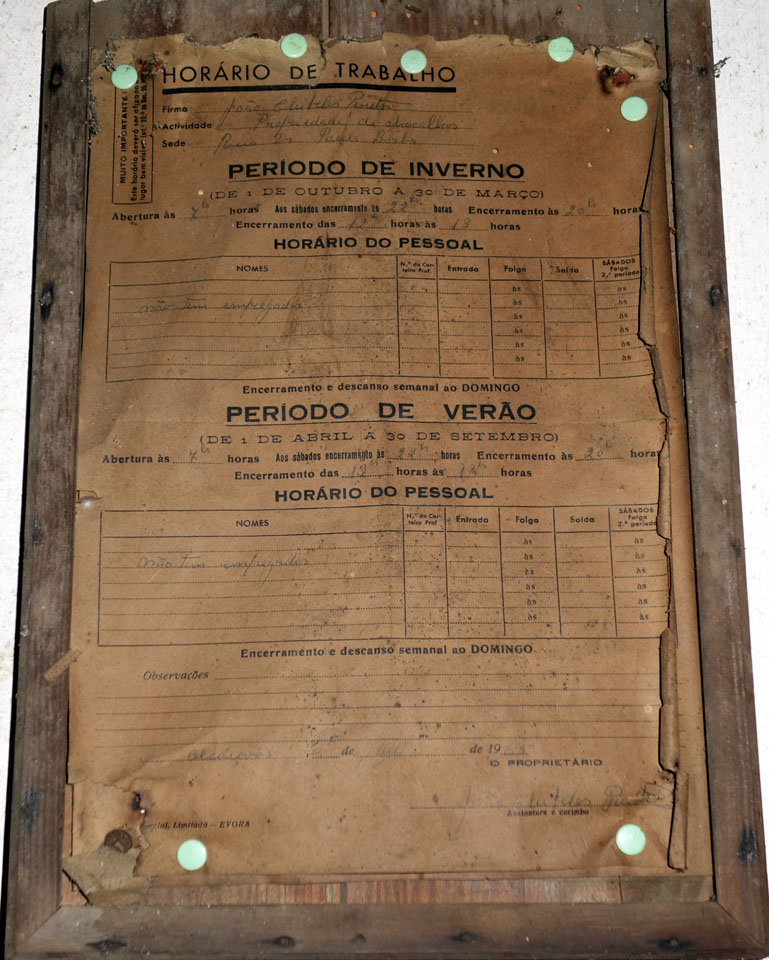 HORÁRIO DE TRABALHO
MUITO IMPORTANTE:
Este horário deverá ser afixado
lugar bem visível
Firma João
Actividade Propriedade de chocalhos
Sede Rua Dr.
PERÍODO DE INVERNO
(DE 1 DE OUTUBRO A 30 DE MARÇO)
Abertura às 7h horas Aos sábados encerramento às 22h horas Encerramento às 20h horas
Encerramento das 12h horas às 13 horas
HORÁRIO DO PESSOAL
NOMES N.º da Car- teira Prof. Entrada Folga Saída SÁBADOS Folga 2.º período
às
não tem empregados às
às
às
às
às
Encerramento e descanso semanal ao DOMINGO
PERÍODO DE VERÃO
(DE 1 DE ABRIL A 30 DE SETEMBRO)
Abertura às 7h horas Aos sábados encerramento às horas Encerramento às 20h horas
Encerramento das 12h horas às horas
HORÁRIO DO PESSOAL
NOMES N.º da Car- teira Prof. Entrada Folga Saída SÁBADOS Folga 2.º período
às
não tem empregados às
às
às
às
às
Encerramento e descanso semanal ao DOMINGO
Observações
Alcáçovas de de 19
O PROPRIETÁRIO
João
Assinatura e carimbo
Limitada — EVORA